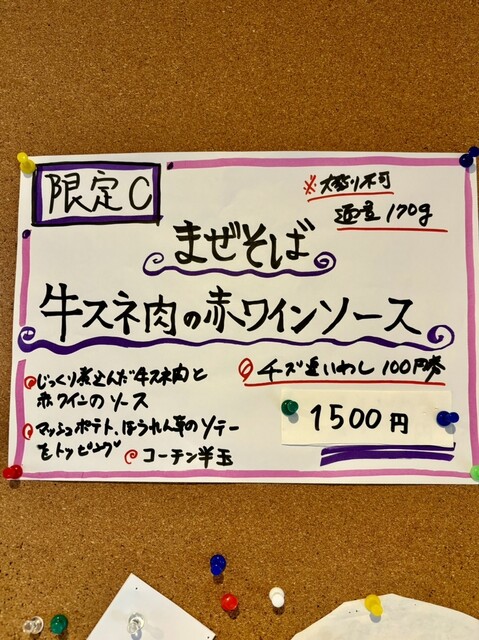 限定C
※大盛り不可
通常170g
まぜそば
牛スネ肉の赤ワインソース
じっくり煮込んだ牛スネ肉と
赤ワインのソース
マッシュポテト、ほうれん草のソテー
をトッピング
コーチン半玉
チーズ追いめし 100円券
1500円